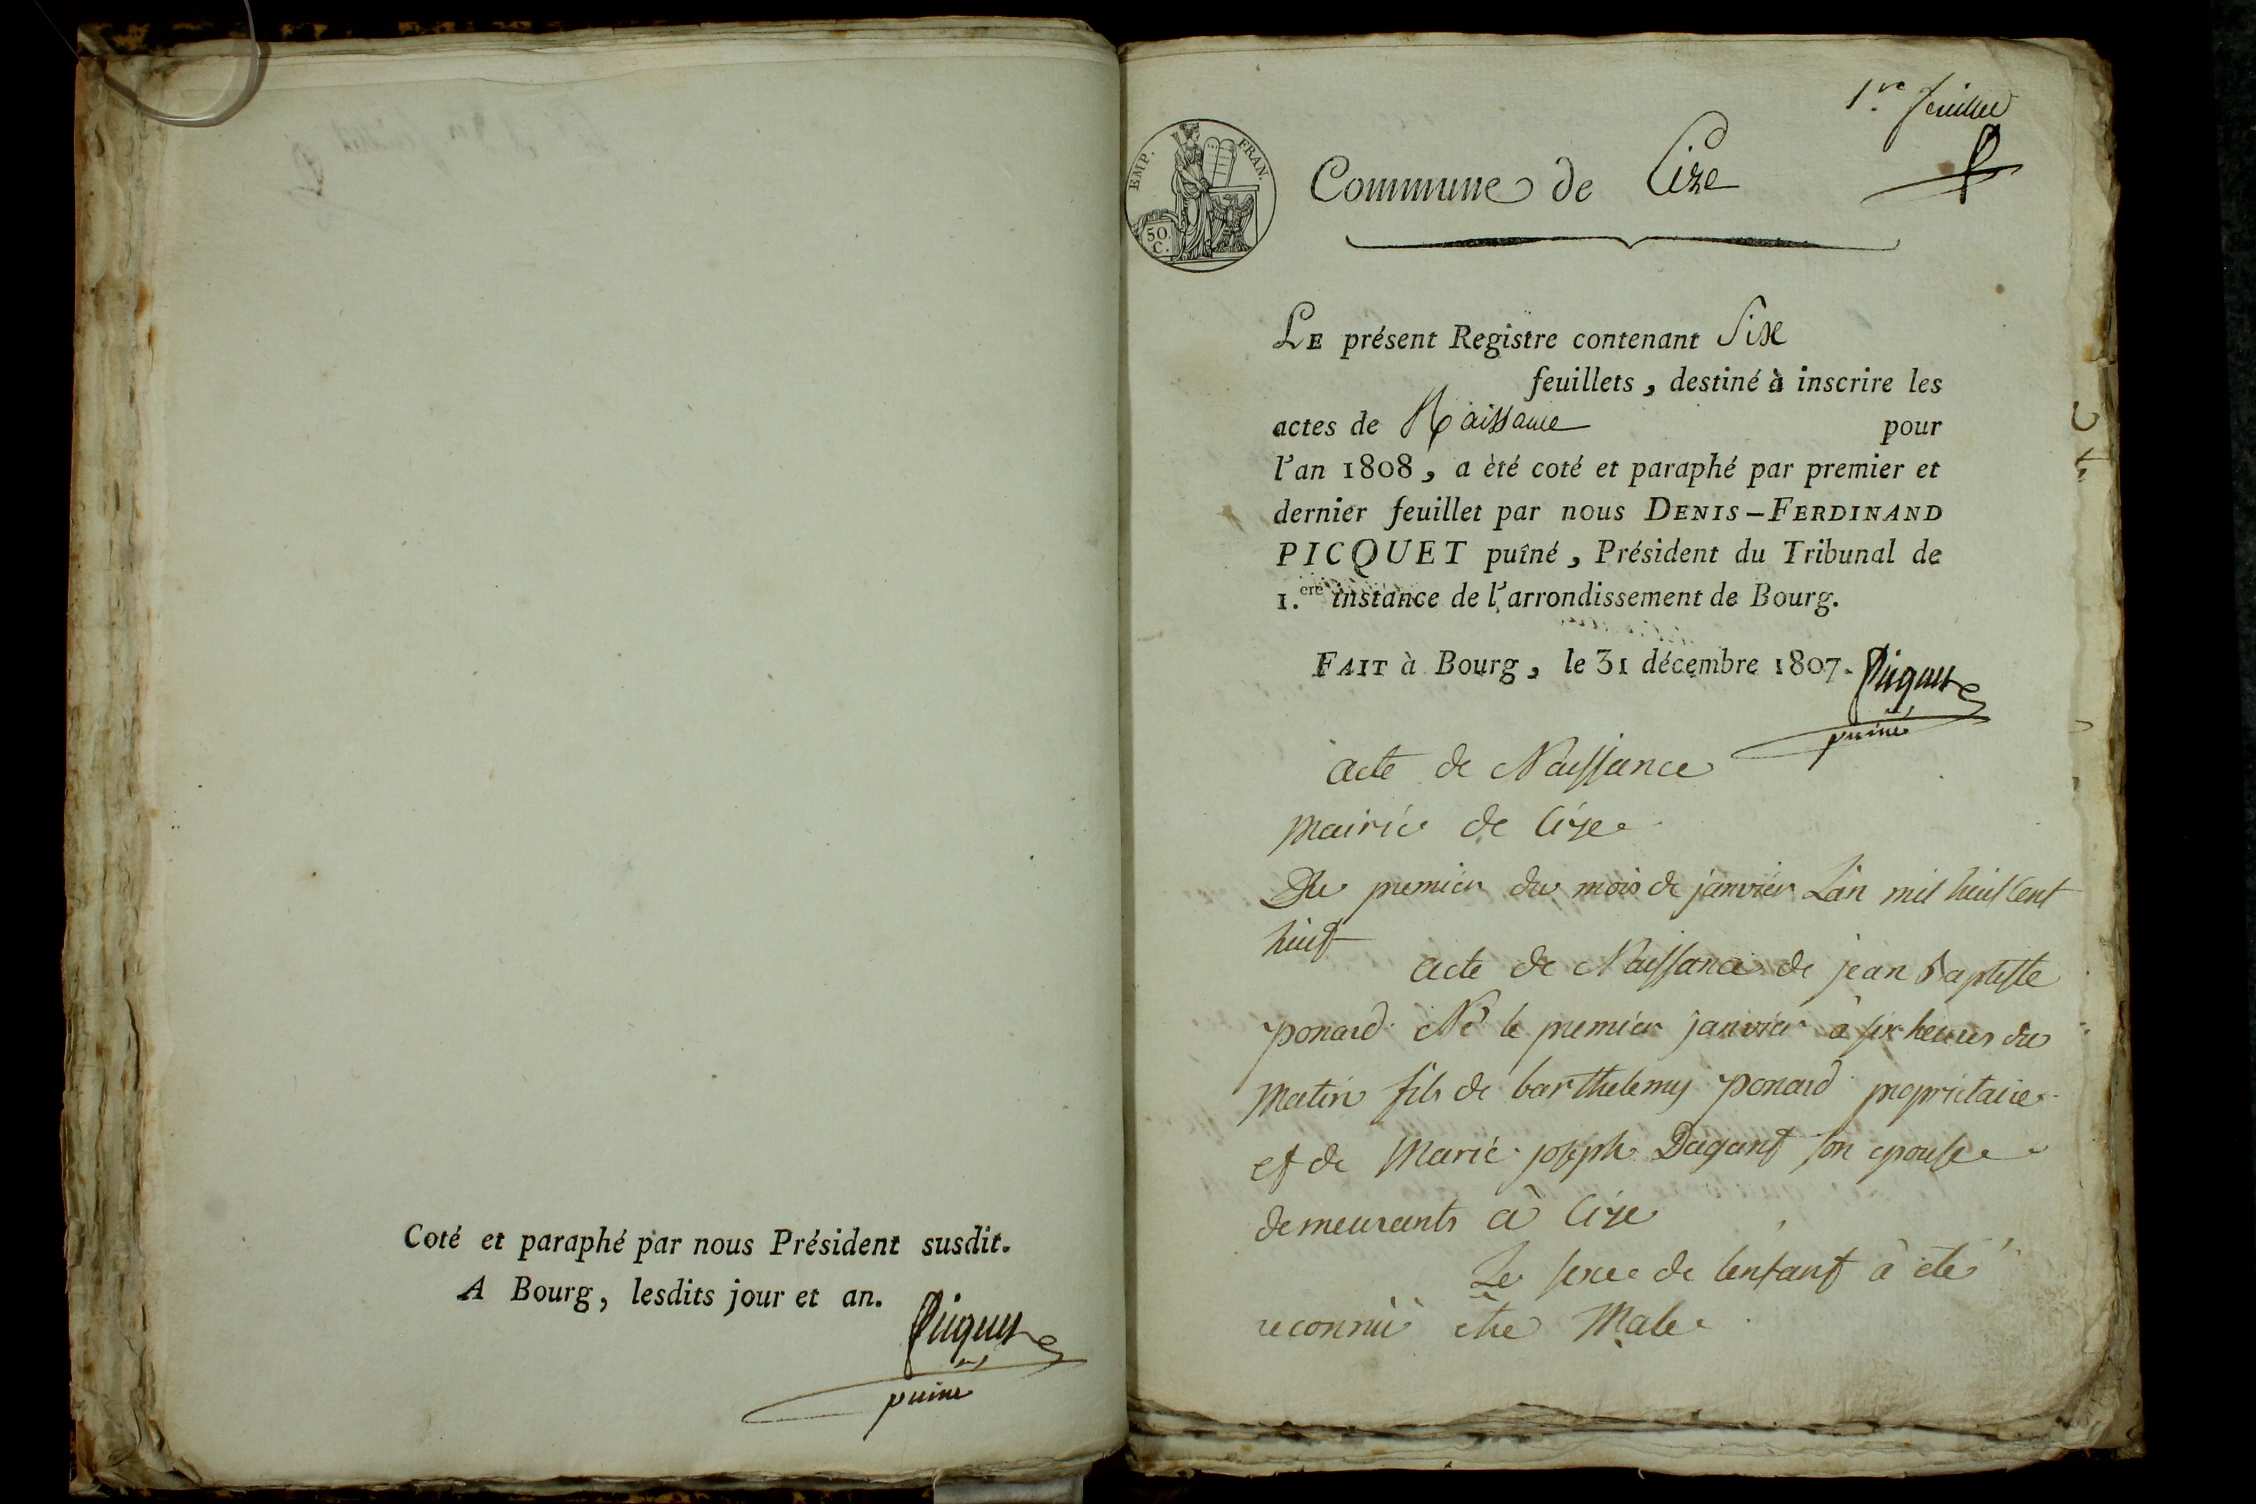 Coté et paraphé par nous Président susdit.
A Bourg, lesdits jour et an.
Picquet
puiné
1er feuillet
EMP. FRAN.
50 C.
Commune de Cize
LE présent Registre contenant Six
feuillets, destiné à inscrire les
actes de Naissance pour
l'an 1808, a èté coté et paraphé par premier et
dernier feuillet par nous DENIS-FERDINAND
PICQUET puîné, Président du Tribunal de
1.ere instance de l'arrondissement de Bourg.
FAIT à Bourg, le 31 décembre 1807.
Picquet
puiné
acte de Naissance
Mairie de Cize
Du premier du mois de janvier Lan mil huit Cent
huit
acte de Naissance de jean baptiste
ponard Né le premier janvier à six heures du
Matin fils de barthelemy ponard proprietaire
et de Marie joseph Dagant son epouse
demeurants à Cize
Le sexe de lenfant à été
reconnü etre Male